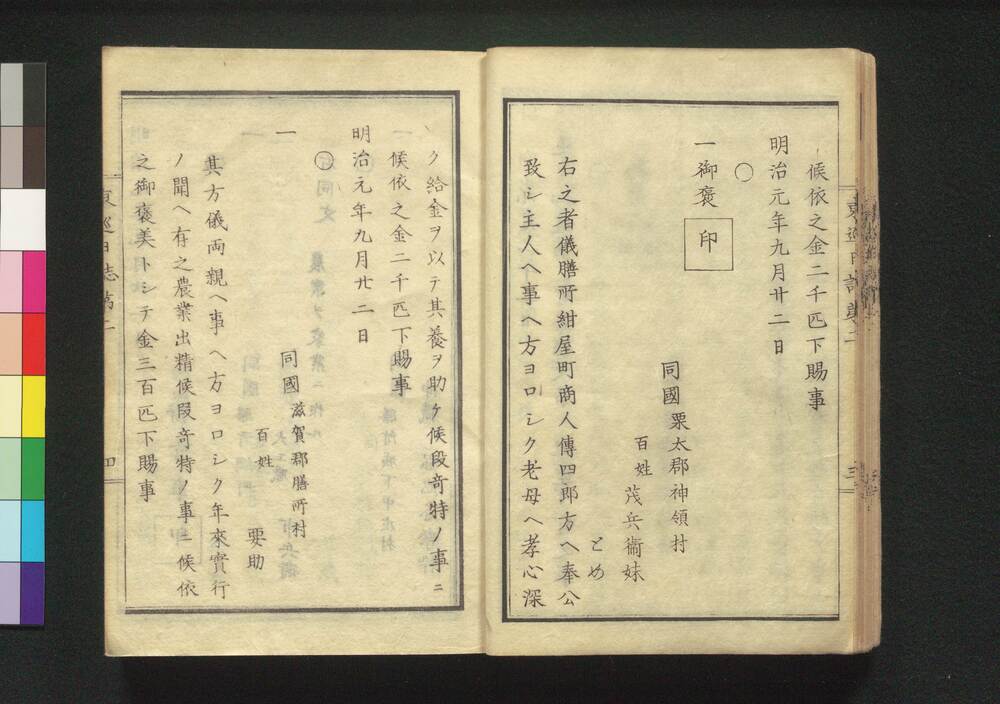 候依之金二千匹下賜事
明治元年九月廿二日
〇
一御褒 印
同國栗太郡神領村
百姓 茂兵衞妹
とめ
右之者儀膳所紺屋町商人傳四郎方ヘ奉公
致シ主人ヘ事ヘ方ヨロシク老母ヘ孝心深
ク給金ヲ以テ其養ヲ助ケ候段竒特ノ事ニ
候依之金二千匹下賜事
明治元年九月廿二日
〇
一
同國滋賀郡膳所村
百姓 要助
其方儀両親ヘ事ヘ方ヨロシク年來實行
ノ聞ヘ有之農業出精候段竒特ノ事ニ候依
之御褒美トシテ金三百匹下賜事
東巡日誌第二
四